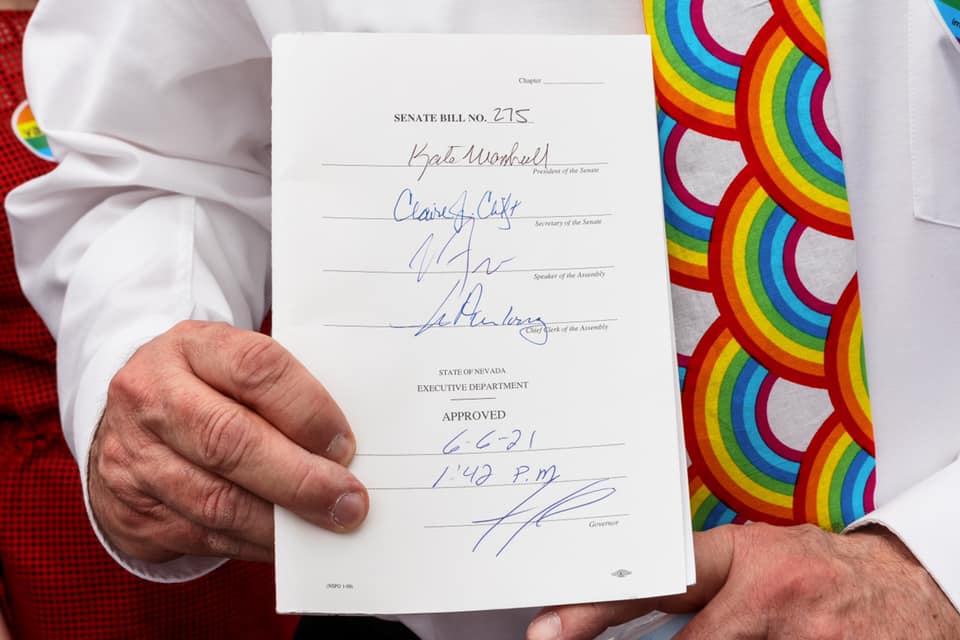 Chapter
SENATE BILL NO. 275
Kate Marshall
President of the Senate
Claire J. Clift
Secretary of the Senate
Speaker of the Assembly
Chief Clerk of the Assembly
STATE OF NEVADA
EXECUTIVE DEPARTMENT
APPROVED
6-6-21
1:42 P.M
Governor
(NSPO 1-99)